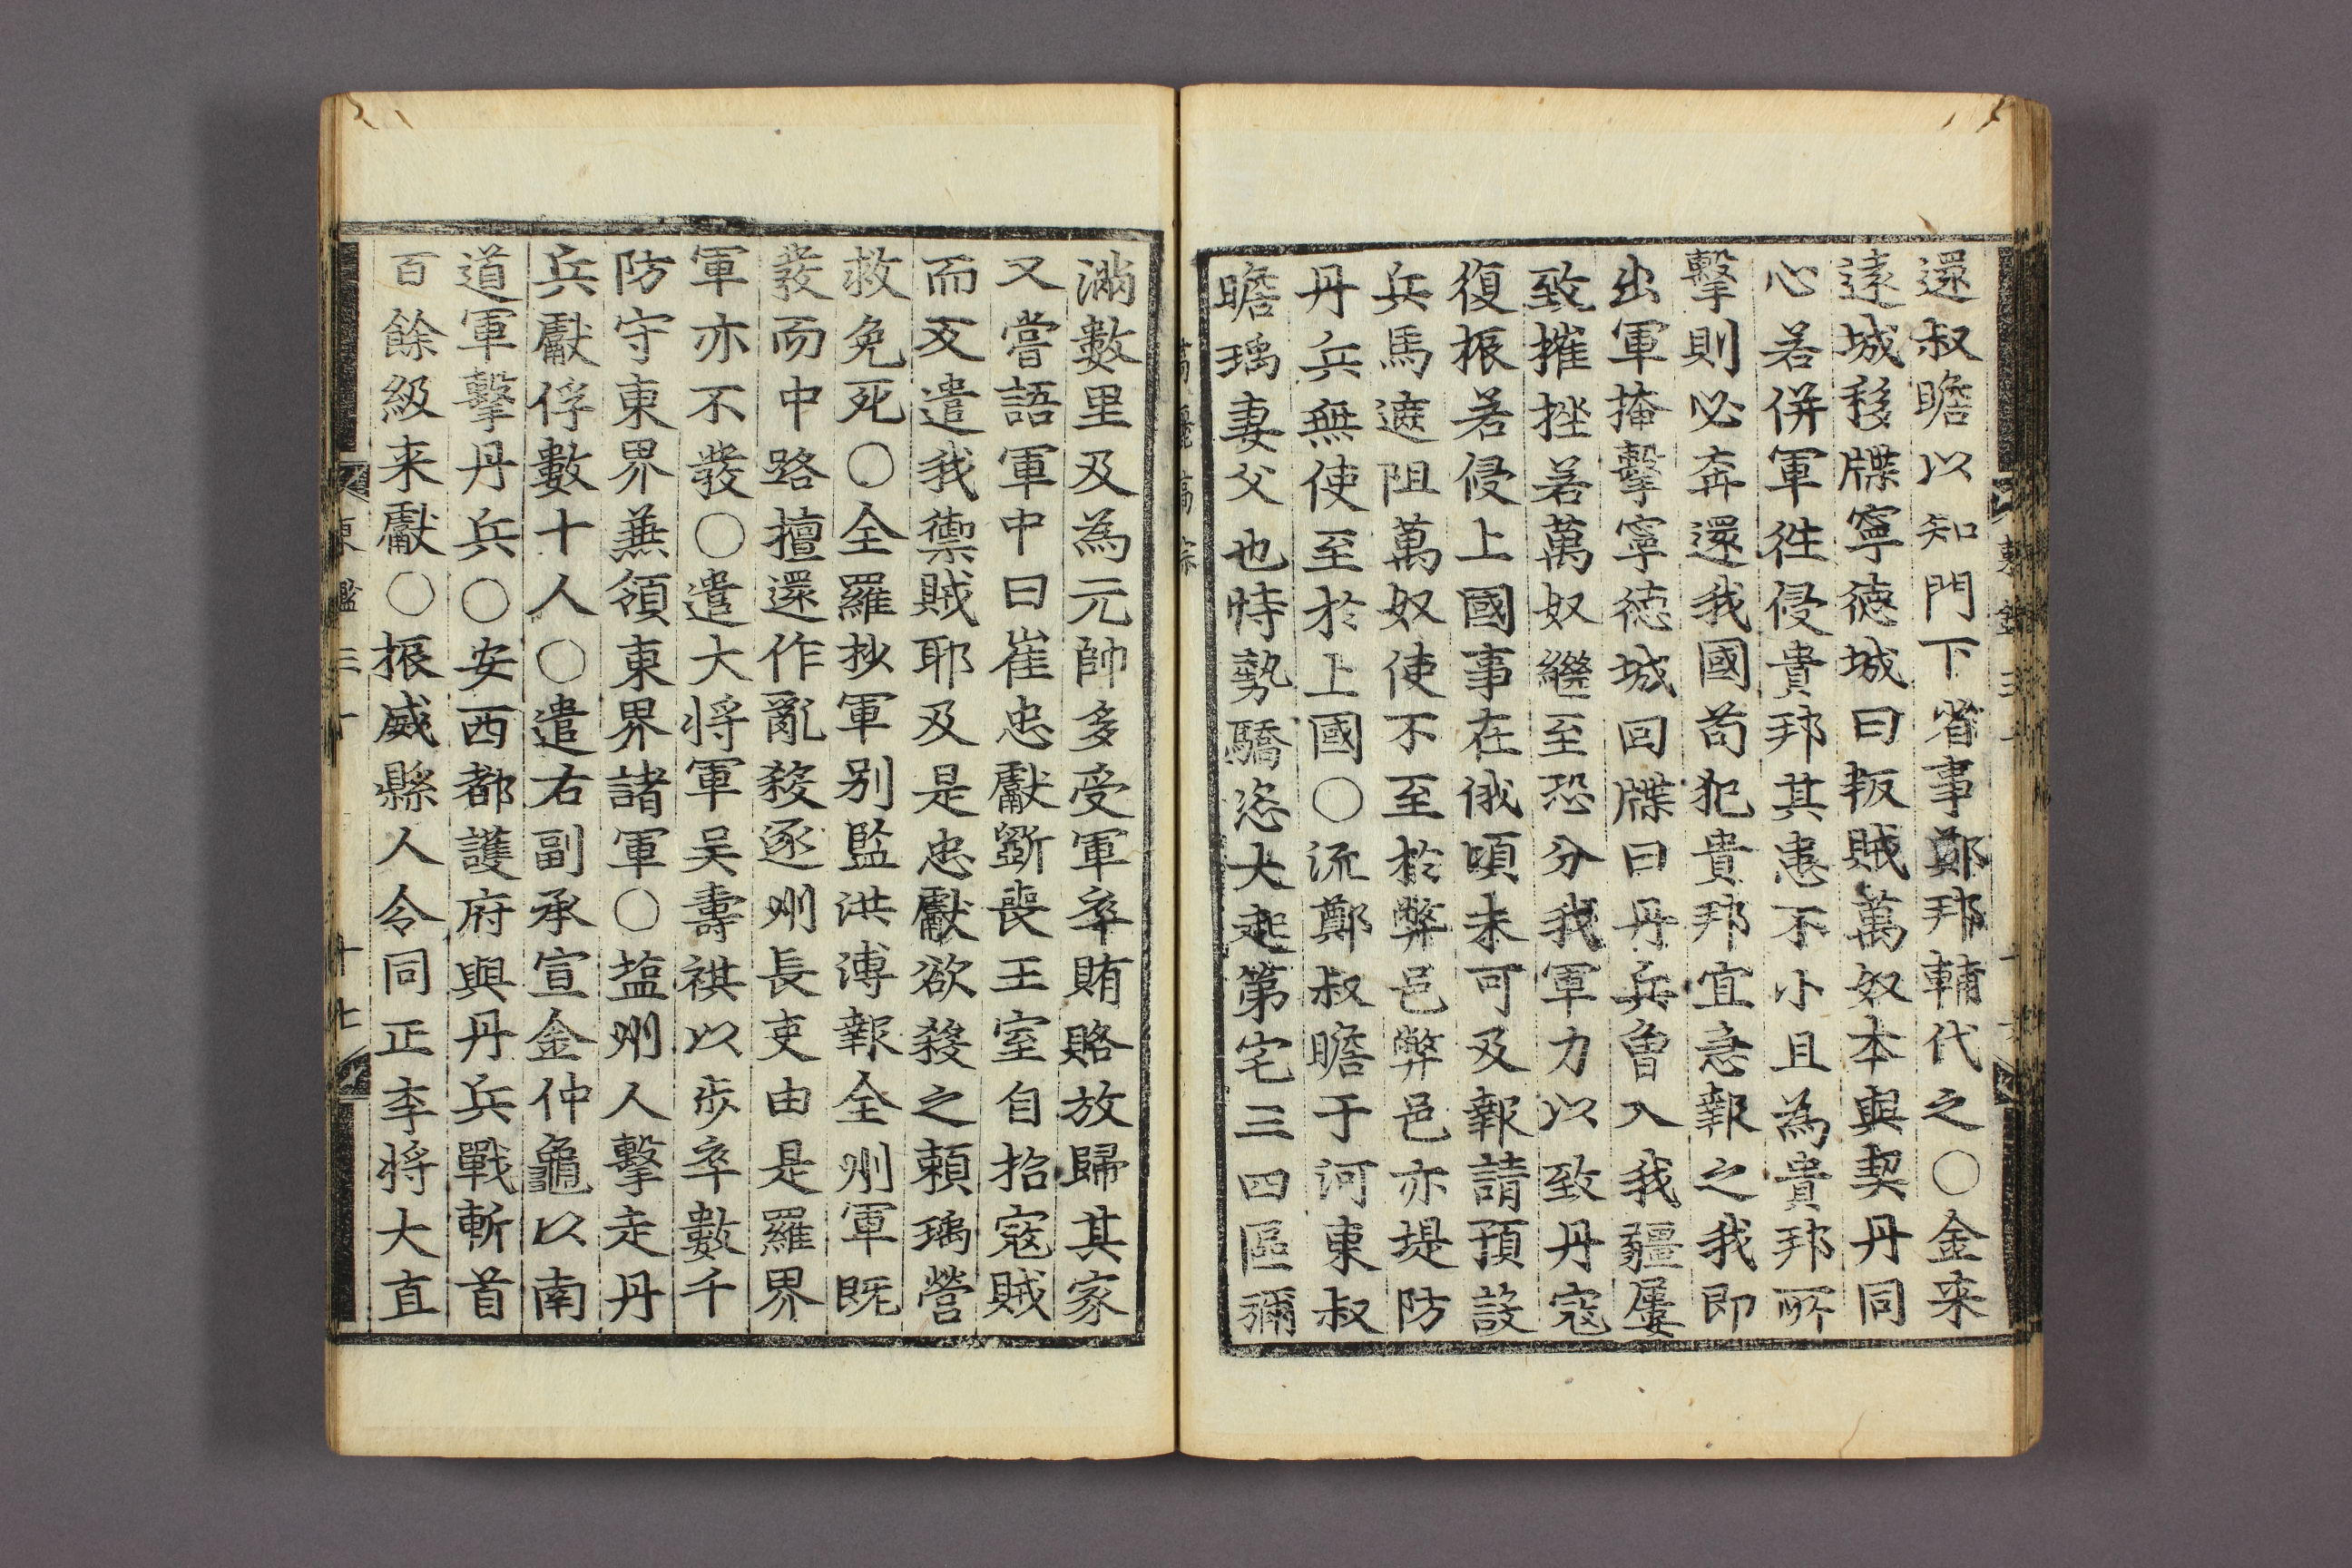 還叔瞻以知門下省事鄭邦輔代之○金来
遠城移牒寧徳城曰叛賊萬奴本與契丹同
心若併軍徃侵貴邦其患不小且為貴邦所
擊則必奔還我國苟犯貴邦宜急報之我即
出軍掩擊寧徳城回牒曰丹兵曾入我疆屢
致摧挫若萬奴繼至恐分我軍力以致丹寇
復振若侵上國事在俄頃未可及報請預設
兵馬遮阻萬奴使不至於弊邑弊邑亦堤防
丹兵無使至於上國○流鄭叔瞻于河東叔
瞻瑀妻父也恃勢驕恣大起第宅三四區彌
滿數里及為元帥多受軍卒賄賂放歸其家
又嘗語軍中曰崔忠獻斲喪王室自招寇賊
而反遣我禦賊耶及是忠獻欲殺之頼瑀營
救免死○全羅抄軍别監洪溥報全州軍既
發而中路擅還作亂殺逐州長吏由是羅界
軍亦不發○遣大将軍吴壽祺以歩卒數千
防守東界兼領東界諸軍○塩州人擊走丹
兵獻俘數十人○遣右副承宣金仲龜以南
道軍擊丹兵○安西都護府與丹兵戰斬首
百餘級来獻○振威縣人令同正李将大直
東鑑三十 十七